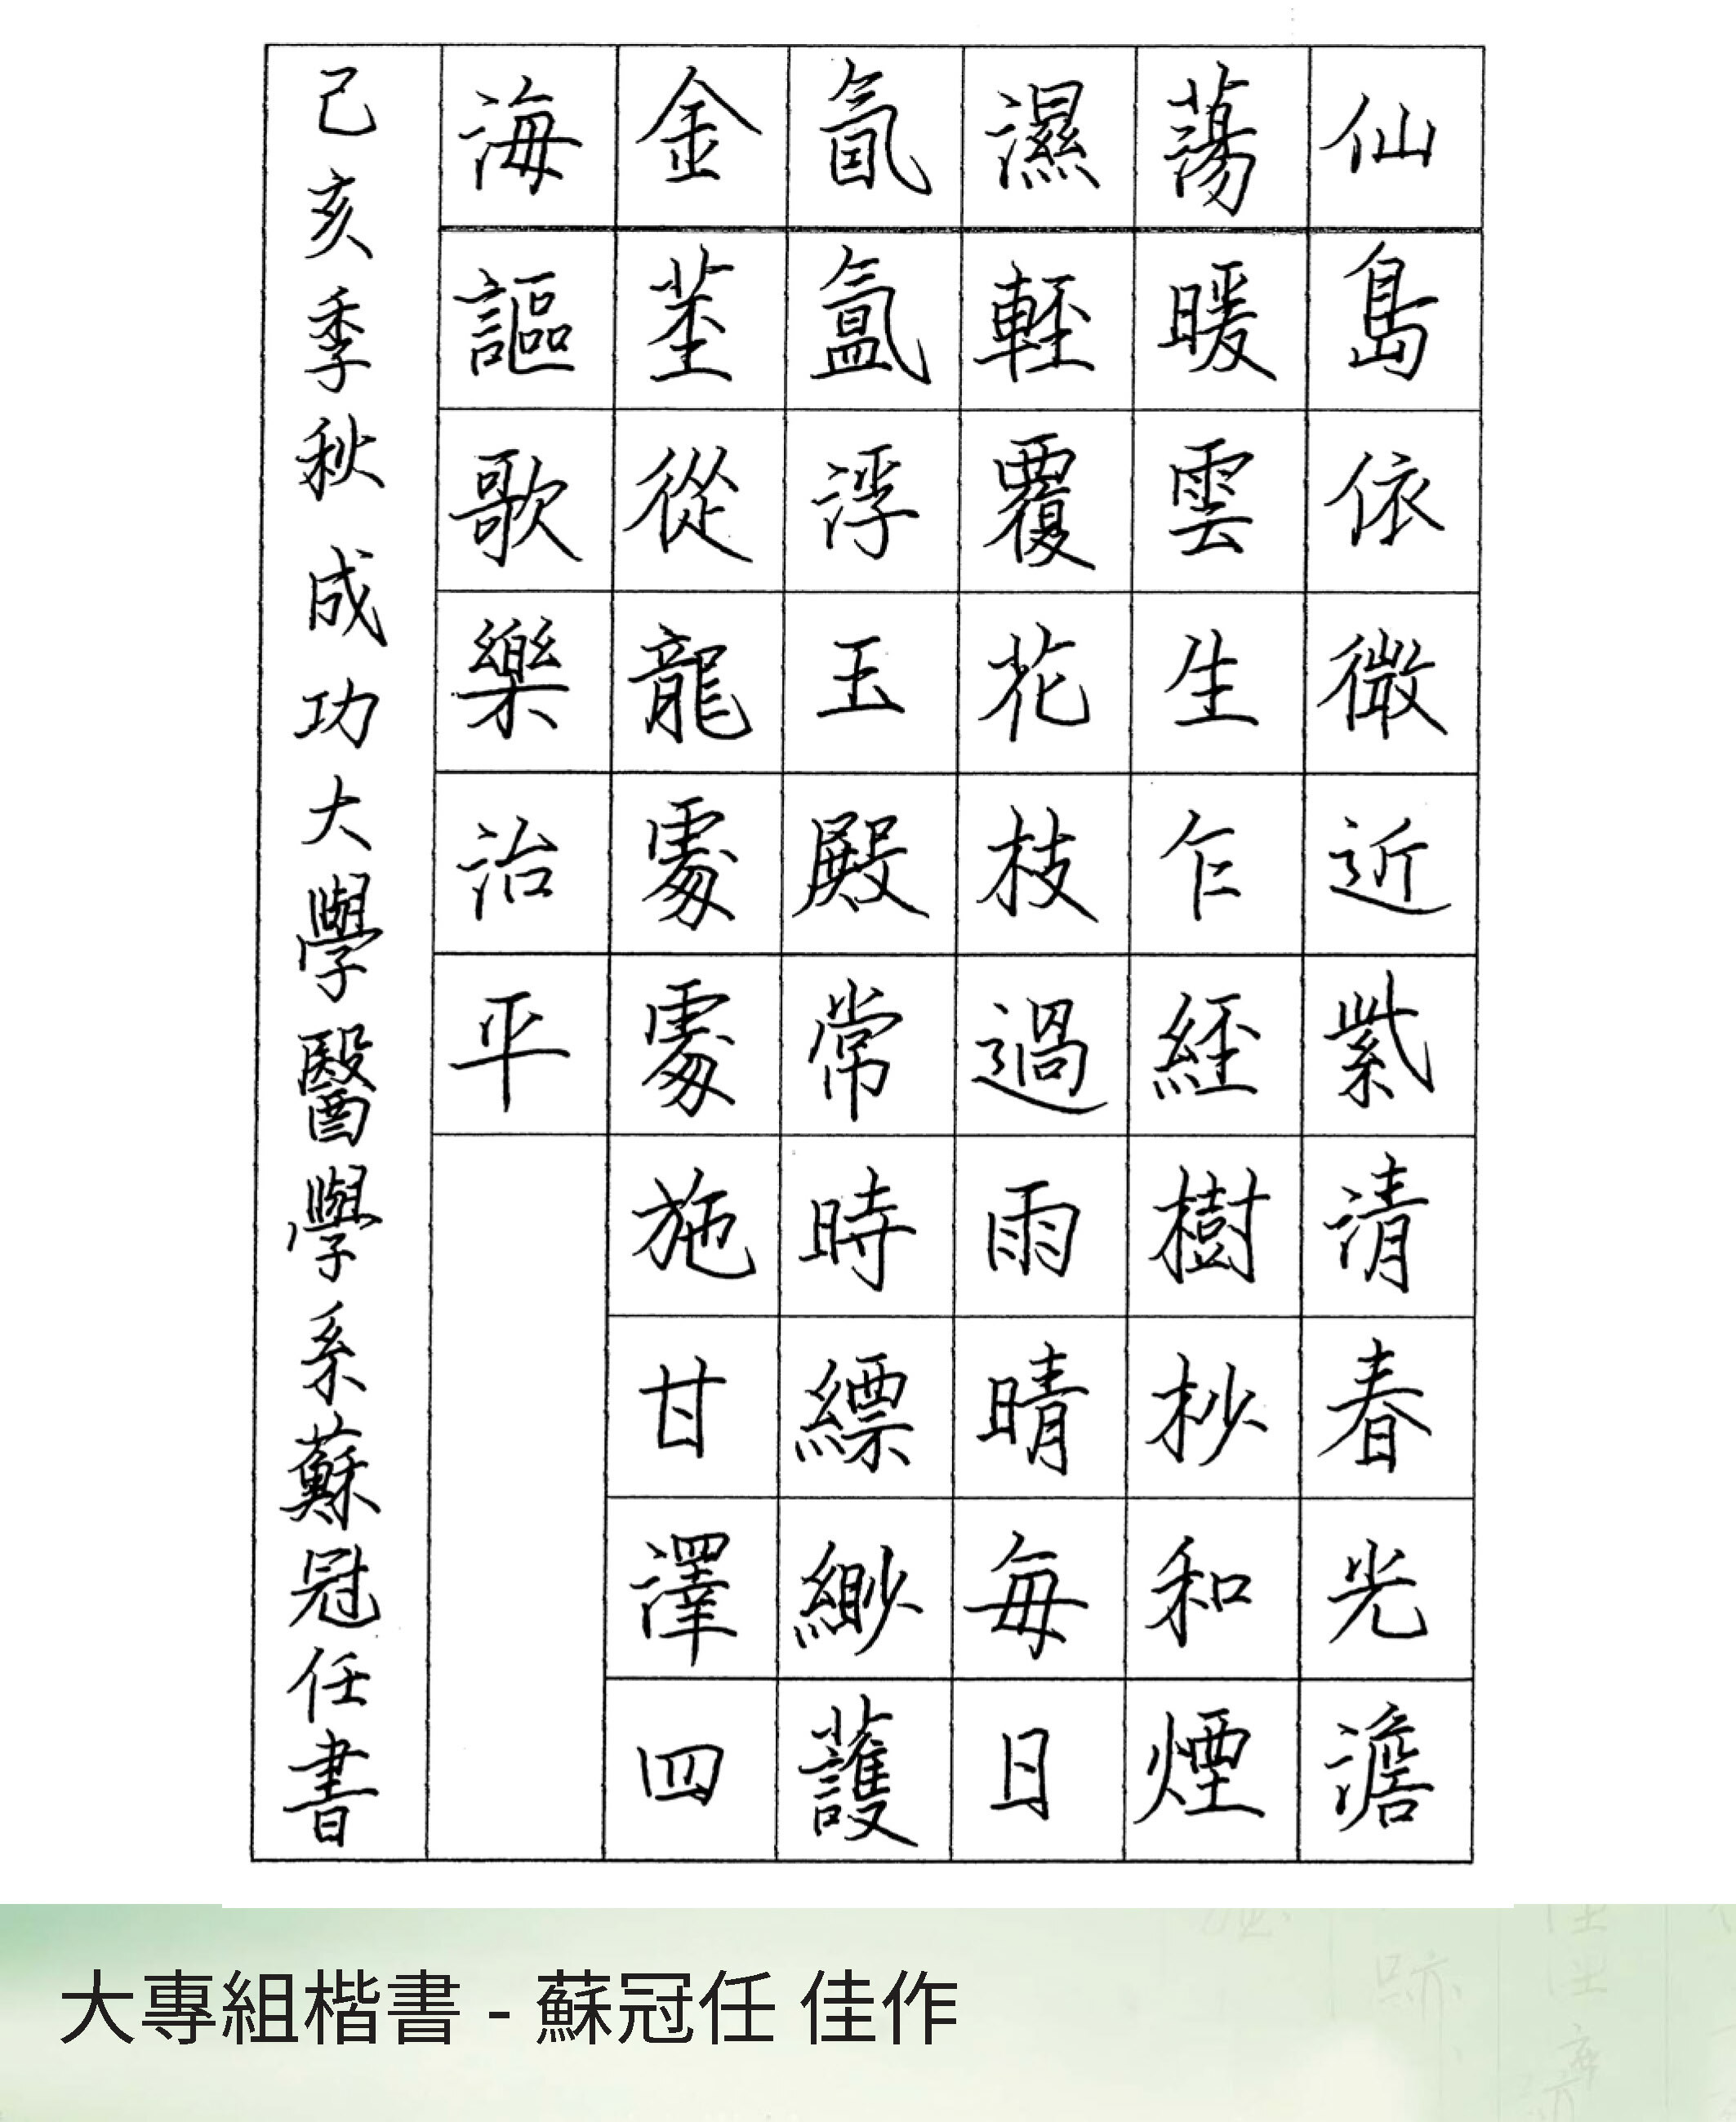 仙島依微近紫清春光澹
蕩暖雲生乍經樹杪和煙
濕輕覆花枝過雨晴每日
氤氳浮玉殿常時縹緲護
金莖從龍處處施甘澤四
海謳歌樂治平
己亥季秋成功大學醫學系蘇冠任書
大專組楷書 - 蘇冠任 佳作